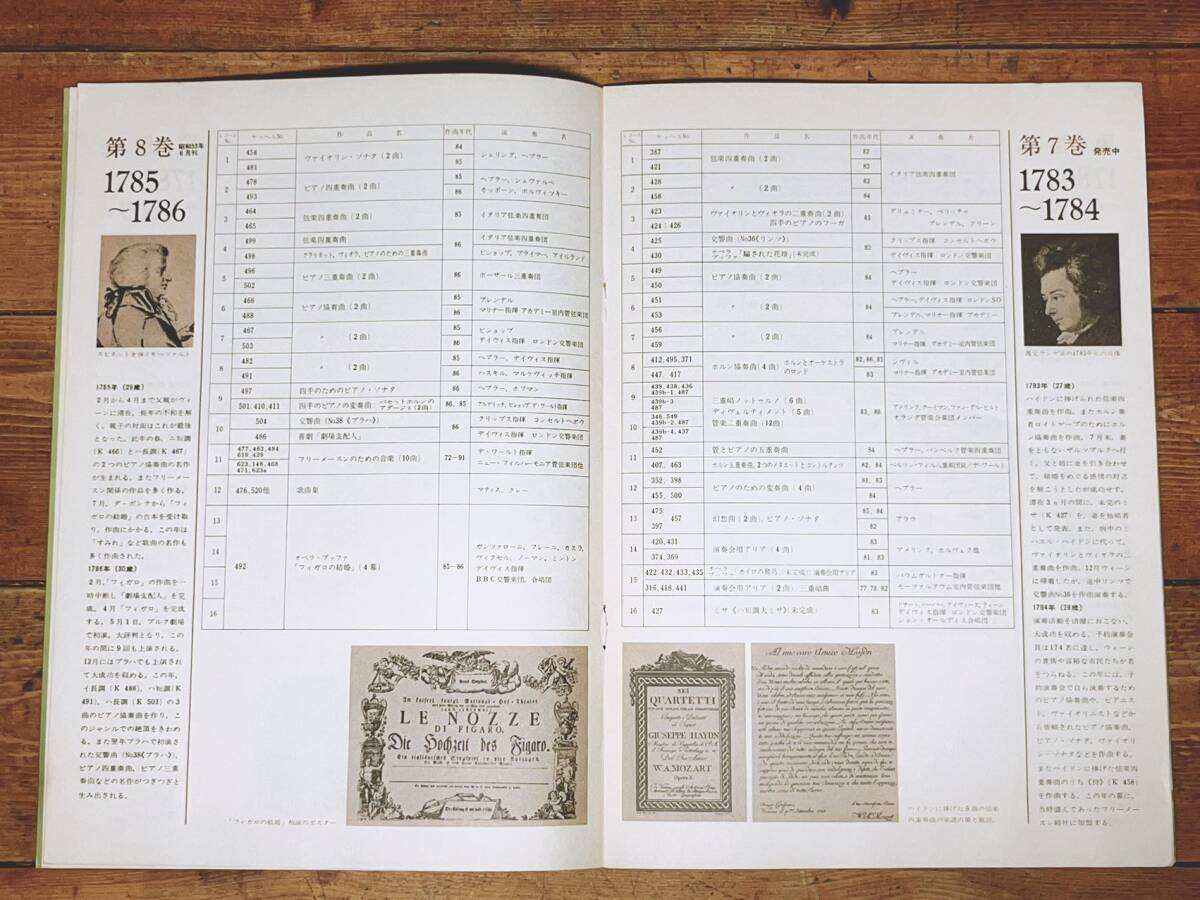 第8巻 昭和53年6月刊
1785
～1786
ケッヘルNo. 作品名 作曲年代 演奏者
1 454 ヴァイオリン・ソナタ(2曲) 84 シェリング、ヘブラー
481 85
2 478 ピアノ四重奏曲(2曲) 85 ヘブラー、シュヴァルベ
493 86 カッポーン、ボルヴィツキー
3 464 弦楽四重奏曲(2曲) 85 イタリア弦楽四重奏団
465
4 499 弦楽四重奏曲 86 イタリア弦楽四重奏団
498 クラリネット、ヴィオラ、ピアノのための三重奏曲 ビショップ、ブライマー、アイルランド
5 496 ピアノ三重奏曲(2曲) 86 ボーザール三重奏団
502
6 466 ピアノ協奏曲(2曲) 85 ブレンデル
488 86 マリナー指揮 アカデミー室内管弦楽団
7 467 〃 (2曲) 85 ビショップ
503 86 デイヴィス指揮 ロンドン交響楽団
8 482 〃 (2曲) 85 ヘブラー、デイヴィス指揮
491 86 ハスキル、マルケヴィッチ指揮
9 497 四手のためのピアノ・ソナタ 86 ヘブラー、ホフマン
501,410,411 四手のピアノ変奏曲; バセットホルンのアダージョ(2曲) 86, 85
10 504 交響曲(No38《プラハ》) 86 クリップス指揮 コンセルトヘボウ
486 喜劇「劇場支配人」 デイヴィス指揮 ロンドン交響楽団
11 477,483,484 フリーメースンのための音楽(10曲) 72-91 デ・ワールト指揮
619,429
623,148,468 ニュー・フィルハーモニア管弦楽団他
471,623a
12 476,520他 歌曲集 マティス、クレー
13
14
15
16
492 オペラ・ブッファ「フィガロの結婚」(4幕) 85-86 ガンツァローニ、フレーニ、
ヴィクセル、ノーマン、ミントン
デイヴィス指揮
BBC交響楽団、合唱団
スピネットを弾くモーツァルト
1785年 (29歳)
2月から4月まで父親がウィ
ーンに滞在。長年の不和を解
く。親子の対面はこれが最後
となった。此年の春、ニ短調
(K466)とハ長調(K467)
の2つのピアノ協奏曲の名作
が生まれる。またフリーメー
スン関係の作品を多く作る。
7月、ダ・ポンテから「フィ
ガロの結婚」の台本を受け取
り、作曲にかかる。この年は
「すみれ」など歌曲の名作も
多く作曲された。
1786年 (30歳)
2月、「フィガロ」の作曲を一
時中断し「劇場支配人」を完
成。4月「フィガロ」を完成
する。5月1日、ブルク劇場
で初演。大評判となり、この
年の間に9回も上演される。
12月にはプラハでも上演され
て大成功を収める。この年、
イ長調(K488)、ハ短調(K
491)、ハ長調(K503)の3
曲のピアノ協奏曲を作り、こ
のジャンルでの絶頂をきわめ
る。また翌年プラハで初演さ
れた交響曲(No38《プラハ》)、
ピアノ四重奏曲、ピアノ三重
奏曲などの名作がつぎつぎと
生み出される。
「フィガロの結婚」初演のポスター
LE NOZZE
DI FIGARO.
Die Hochzeit des Figaro.
第7巻 発売中
1783
～1784
ケッヘルNo. 作品名 作曲年代 演奏者
1 387 弦楽四重奏曲(2曲) 82 イタリア弦楽四重奏団
421 83
2 428 〃 (2曲) 83
458 84
3 423 ヴァイオリンとヴィオラの二重奏曲(2曲) 83
424; 426 四手のピアノのフーガ
4 425 交響曲(No36《リンツ》) 83 クリップス指揮 コンセルトヘボウ
430 オペラ・ブッファ「騙された花婿」(未完成) デイヴィス指揮 ロンドン交響楽団
5 449 ピアノ協奏曲(2曲) 84 ヘブラー
450 デイヴィス指揮 ロンドン交響楽団
6 451 〃 (2曲) 84 ヘブラー、デイヴィス指揮 ロンドンSO
453 ブレンデル、マリナー指揮 アカデミー
7 456 〃 (2曲) 84 ブレンデル
459 マリナー指揮 アカデミー室内管弦楽団
8 412,495,371 ホルン協奏曲(4曲) ホルンとオーケストラのロンド 82,86,81 シヴィル
447, 417 83 マリナー指揮 アカデミー室内管弦楽団
9 439,438,436 三重唱ノットゥルノ(6曲) 83, 86
439b-1,487
439b-3 ディヴェルティメント(5曲) オランダ管楽合奏団メンバー
487
10 346,549 管楽二重奏曲(12曲)
439b-2,487
439b-4,437
487
11 452 管とピアノの五重奏曲 84 ヘブラー、バンベルク管楽四重奏団
407, 463 ホルン五重奏曲、2つのメヌエットとコントルダンス 82, 84
12 352, 398 ピアノのための変奏曲(4曲) 81, 83 ヘブラー
455, 500 84
13 475 457 幻想曲(2曲)、ピアノ・ソナタ 85, 84 アラウ
397 82
14 420,431 演奏会用アリア(4曲) 83 アメリンク、ホルヴェク他
374,369 81, 83
15 422;432,433,435 オペラ・ブッファ「カイロの鵞鳥」(未完成); 演奏会用アリア 83 パウムガルトナー指揮
316,418,441 演奏会用アリア(2曲); 三重唱曲 77,78,82 モーツァルテウム室内管弦楽団他
16 427 ミサ《ハ短調大ミサ》(未完成) 83 ドナート、ハーパー、デイヴィース、
デイヴィス指揮 ロンドン交響楽団
ジョン・オールディス合唱団
義兄ランゲ筆の1783年
1783年 (27歳)
ハイドンに捧げられた弦楽四
重奏曲を作曲。またホルン奏
者ロイトゲープのためにホル
ン協奏曲を作曲。7月末、妻
をともないザルツブルクへ行
く。父と姉に妻を引き合わせ
て、結婚をめぐる感情の対立
を解こうとしたが成功せず。
滞在3ヵ月の間に、未完のミ
サ(K427)を、妻を独唱者
として発表。また、病中のミ
ハエル・ハイドンに代って、
ヴァイオリンとヴィオラの二
重奏曲を作曲。12月ウィーン
に帰着したが、途中リンツで
交響曲No36を作曲演奏する。
1784年 (28歳)
演奏活動を活溌におこない、
大成功を収める。予約演奏会
員は174名に達し、ウィーン
の貴族や富裕な市民たちが名
をつらねる。この年には、予
約演奏会で自ら演奏するため
のピアノ協奏曲や、ピアニス
ト、ヴァイオリニストなどか
ら依頼されたピアノ協奏曲、
ピアノ・ソナタ、ヴァイオリ
ン・ソナタなどを作曲する。
またハイドンに捧げた弦楽四
重奏曲のうち《狩》(K458)
を作曲する。この年の暮に、
当時盛んであったフリーメー
スン結社に加盟する。
SEI
QUARTETTI
GIUSEPPE HAYDN
W.A. MOZART
Opera X.
Al mio caro Amico Haydn
ハイドンに捧げた6曲の弦楽
四重奏曲の楽譜の表と献辞。